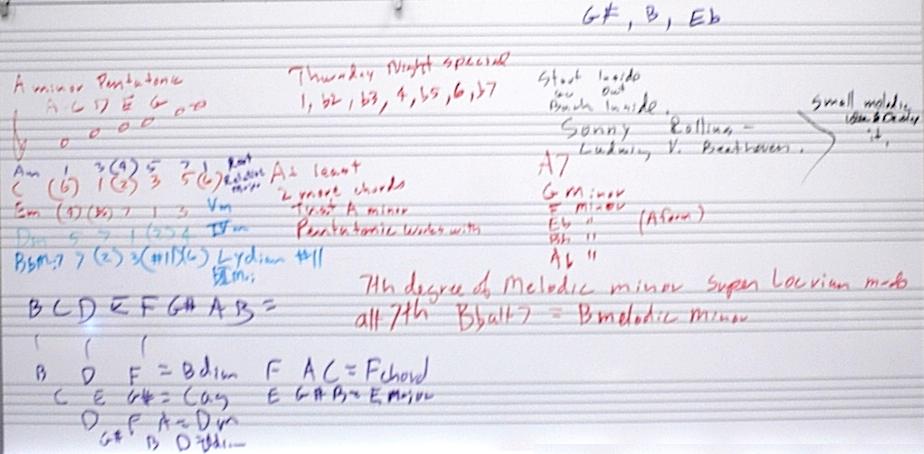 G#, B, Eb
A minor Pentatonic
A C D E G
Thursday Night special
1, b2, b3, 4, b5, 6, b7
Start Inside
Go Out
Back Inside
Sonny Rollins -
Ludwig V. Beethoven.
Small melodic
it.
Am 1 3 (4) 5 7 1 Root
C (6) 1 (2) 3 5 (6) Relative Major
Em (4) 7 1 3 Vm
Dm 5 7 1 (2) 4 IVm
7 (2) 3 (#11) (6) Lydian #11
At least
2 more chords
that A minor
Pentatonic works with
A7
G minor
F minor
Eb "
Bb "
Ab "
7th degree of Melodic minor Super Locrian mode
alt 7th Bbalt7 = B melodic minor
B C D E F G# A B =
B D F = Bdim F A C = F chord
C E G# = Caug E G# B = E Major
D F A = Dm
G# B D =